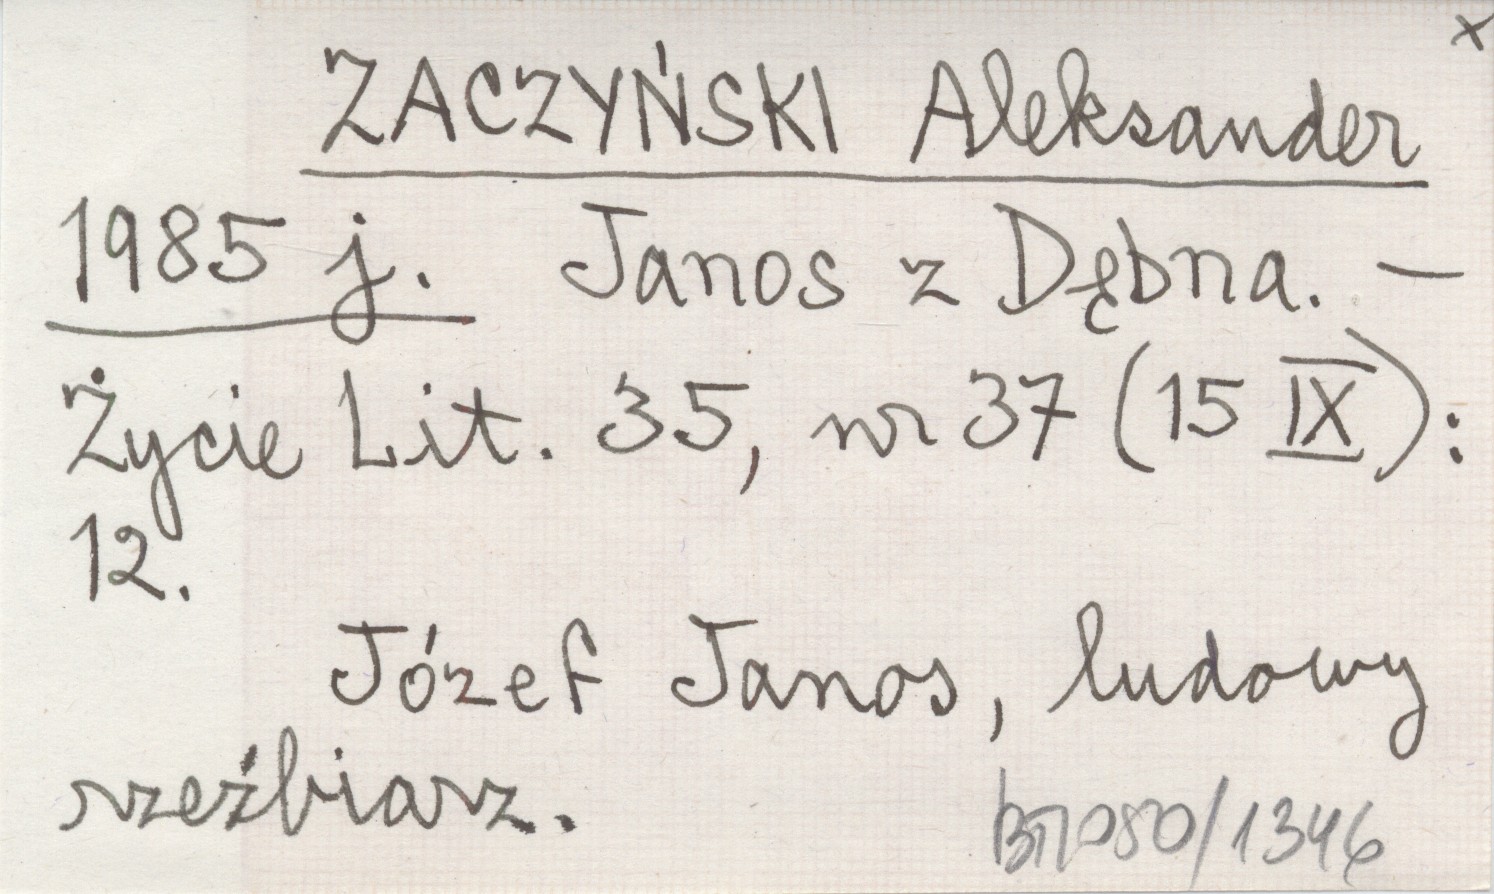 x
ZACZYŃSKI Aleksander
1985 j. Janos z Dębna. —
Życie Lit. 35, nr 37 (15 IX):
12.
Józef Janos, ludowy
rzeźbiarz.
/1346